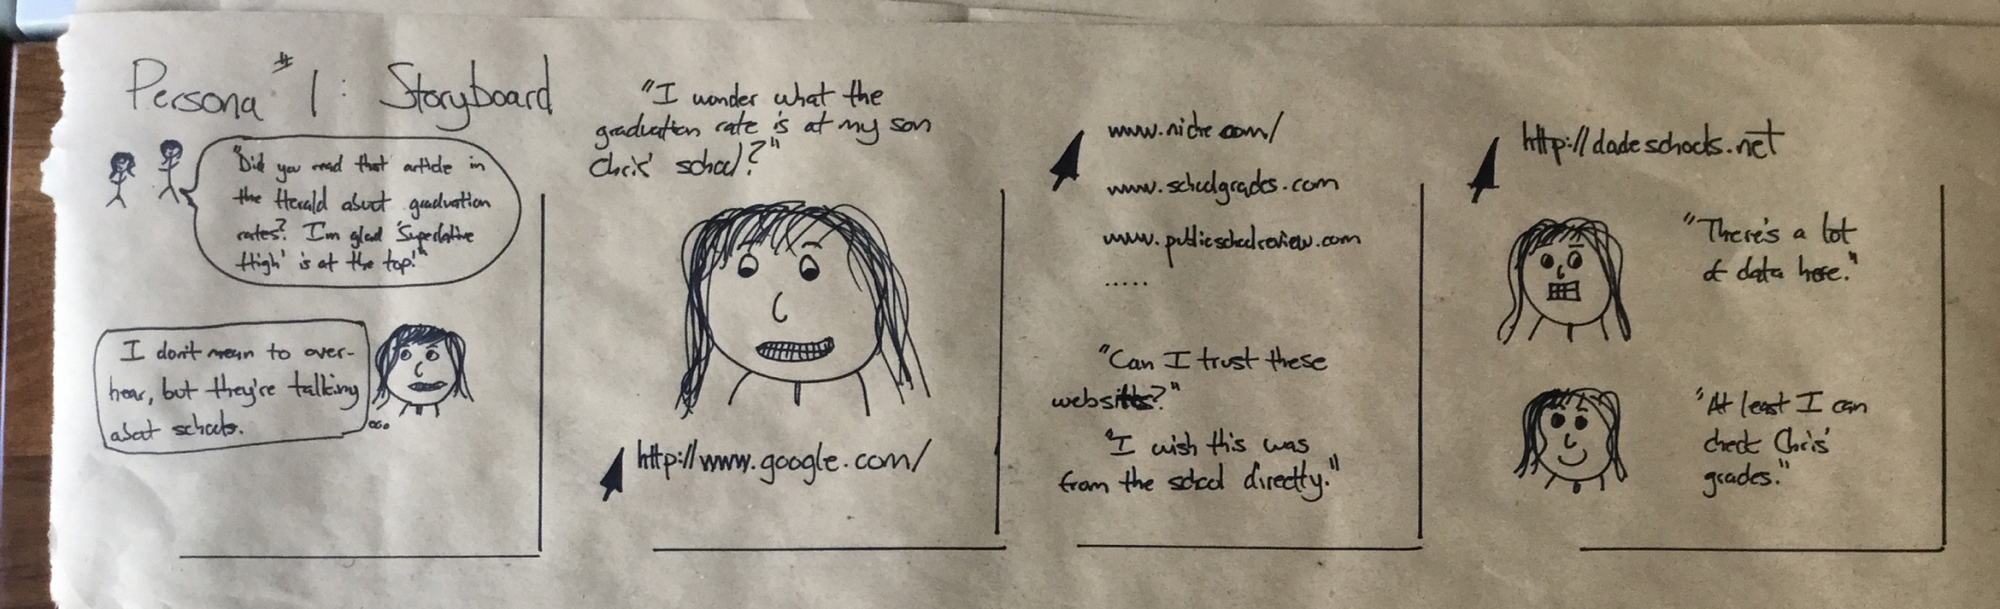 Persona #1: Storyboard
"Did you read that article in
the Herald about graduation
rates? I'm glad 'Superlative
High' is at the top!"
I don't mean to over-
hear, but they're talking
about schools.
"I wonder what the
graduation rate is at my son
Chris' school?"
http://www.google.com/
www.niche.com/
www.schoolgrades.com
www.publicschoolreview.com
.....
"Can I trust these
websites?"
"I wish this was
from the school directly."
http://dadeschools.net
"There's a lot
of data here."
"At least I can
check Chris'
grades."